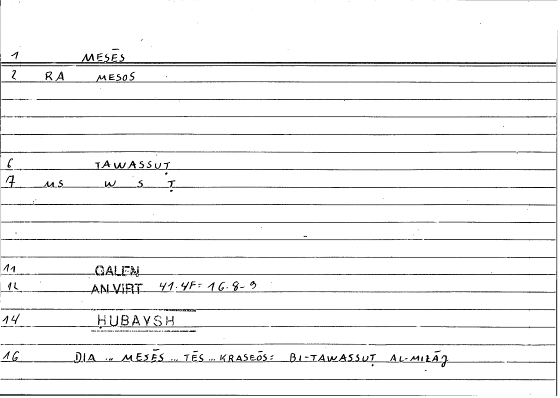 1 MESĒS
2 RA MESOS
6 TAWASSUṬ
7 MS W S Ṭ
11 GALEN
12 AN VIRT 41.4F= 16.8-9
14 ḤUBAYSH
16 DIA ... MESĒS ... TĒS ... KRASEŌS: BI-TAWASSUṬ AL-MIZĀǦ